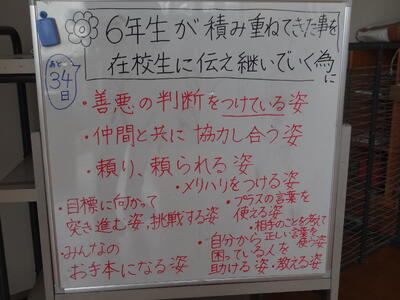 6年生が積み重ねてきた事を
在校生に伝え継いでいく為に
あと
34
日
・善悪の判断をつけている姿
・仲間と共に協力し合う姿
・頼り、頼られる姿
・メリハリをつける姿
・目標に向かって
突き進む姿、挑戦する姿
・プラスの言葉を
使える姿
・相手のことを考えて
正しい言葉を
使う姿
・みんなの
お手本になる姿
・自分から
困っている人を
助ける姿・教える姿